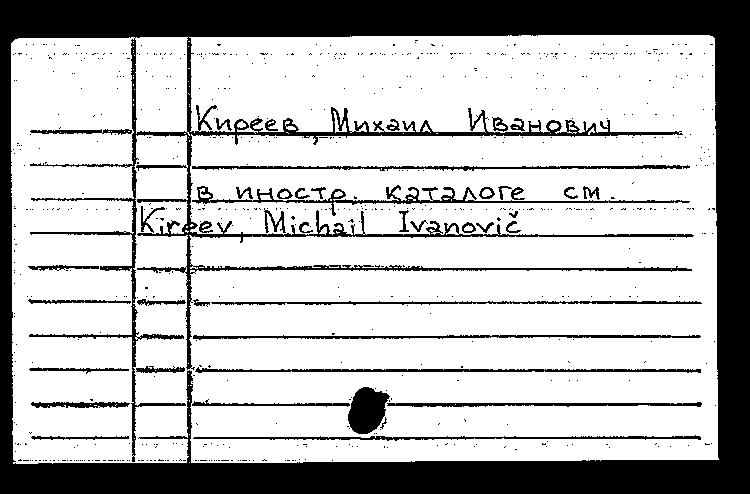 Киреев, Михаил Иванович
в иностр. каталоге см.
Kireev, Michail Ivanovič